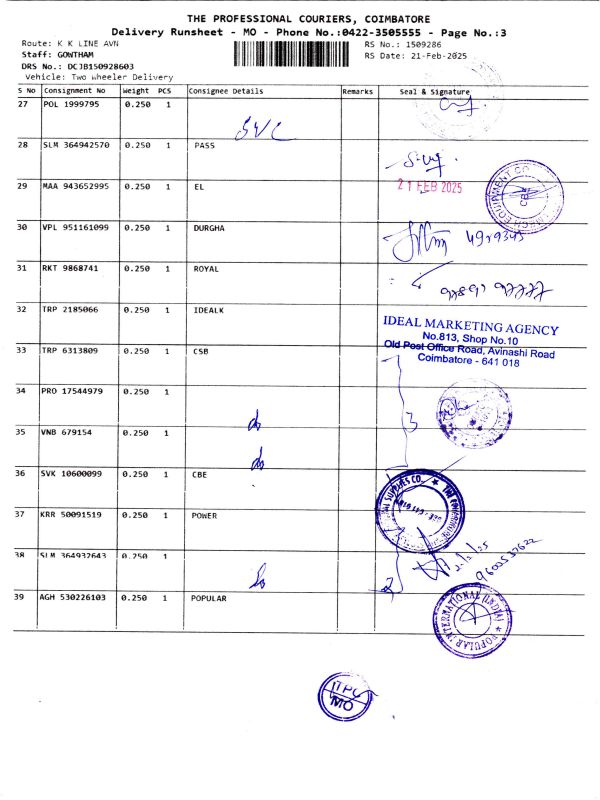 THE PROFESSIONAL COURIERS, COIMBATORE
Delivery Runsheet - MO - Phone No.:0422-3505555 - Page No.:3
Route: K K LINE AVN
RS No.: 1509286
Staff: GOWTHAM
RS Date: 21-Feb-2025
DRS No.: DCJB150928603
Vehicle: Two Wheeler Delivery
S No Consignment No Weight PCS Consignee Details Remarks Seal & Signature
27 POL 1999795 0.250 1
SVC
28 SLM 364942570 0.250 1 PASS
29 MAA 943652995 0.250 1 EL
21 FEB 2025
30 VPL 951161099 0.250 1 DURGHA
31 RKT 9868741 0.250 1 ROYAL
32 TRP 2185066 0.250 1 IDEALK
IDEAL MARKETING AGENCY
No.813, Shop No.10
Old Post Office Road, Avinashi Road
Coimbatore - 641 018
33 TRP 6313809 0.250 1 CSB
34 PRO 17544979 0.250 1
3
35 VNB 679154 0.250 1
do
36 SVK 10600099 0.250 1 CBE
do
37 KRR 50091519 0.250 1 POWER
38 SLM 364932643 0.250 1
39 AGH 530226103 0.250 1 POPULAR
POPULAR INTERNATIONAL (INDIA)
TPC
MO